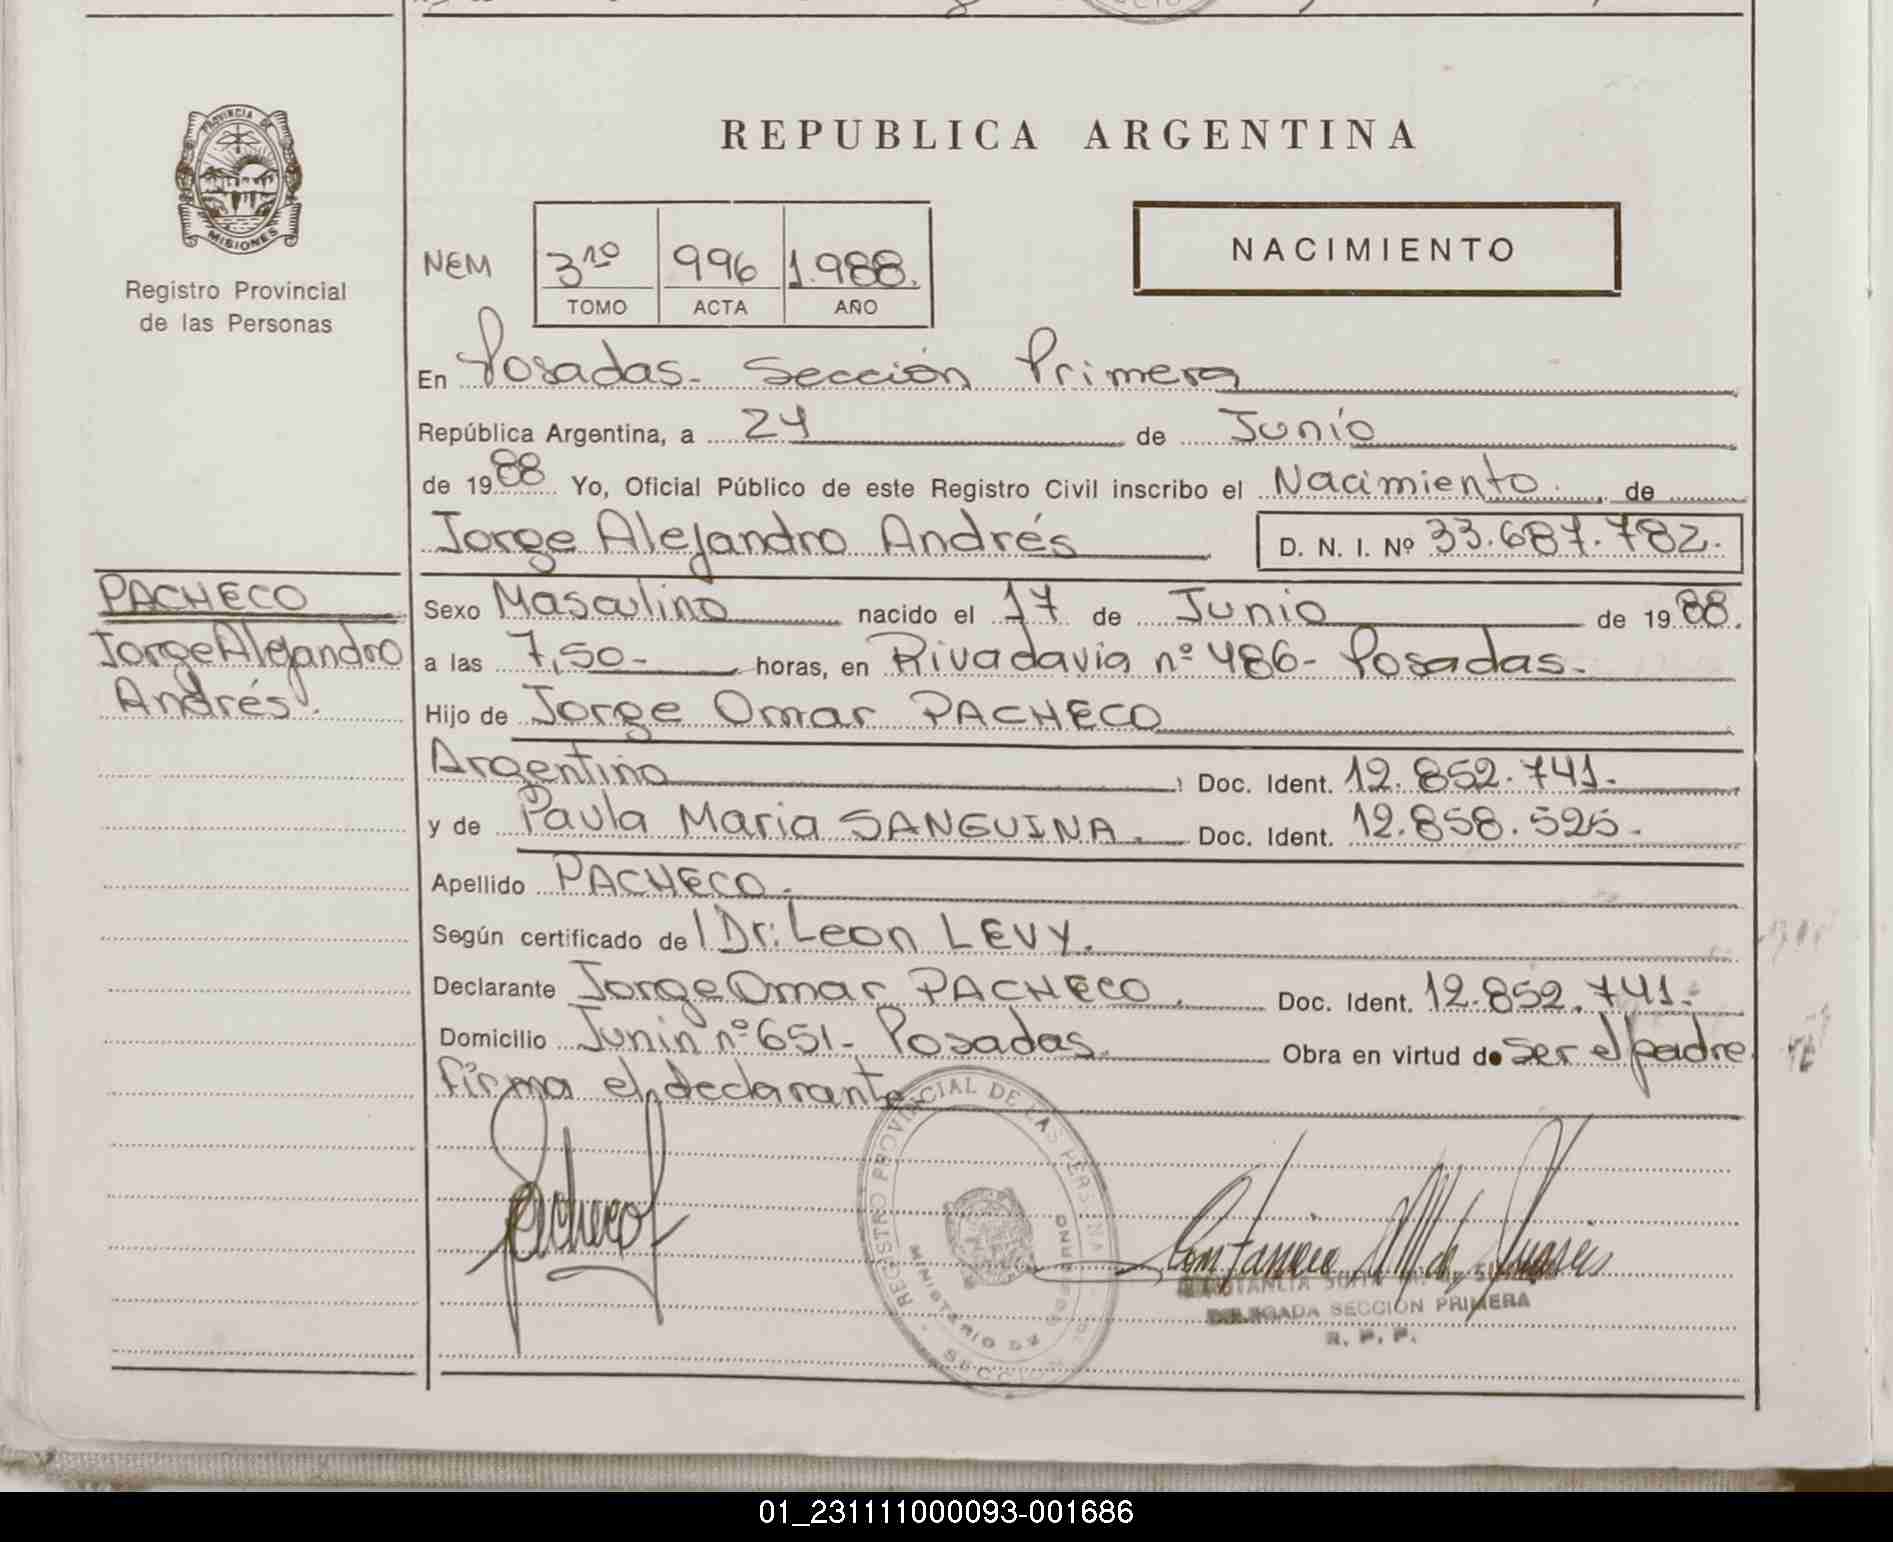 PROVINCIA DE
MISIONES
Registro Provincial
de las Personas
PACHECO
Jorge Alejandro
Andrés.
REPUBLICA ARGENTINA
NACIMIENTO
NEM 3ro 996 1.988.
TOMO ACTA AÑO
En Posadas- Sección Primera
República Argentina, a 24 de Junio
de 1988 Yo, Oficial Público de este Registro Civil inscribo el Nacimiento. de
Jorge Alejandro Andrés D. N. I. Nº 33.687.782.
Sexo Masculino nacido el 17 de Junio de 1988.
a las 7,50- horas, en Rivadavia nº 486- Posadas.
Hijo de Jorge Omar PACHECO
Argentino Doc. Ident. 12.852.741.
y de Paula Maria SANGUINA. Doc. Ident. 12.858.525.
Apellido PACHECO.
Según certificado de Dr: Leon LEVY.
Declarante Jorge Omar PACHECO. Doc. Ident. 12.852.741.
Domicilio Junin nº 651- Posadas. Obra en virtud de ser el padre
firma el declarante
Pacheco
REGISTRO PROVINCIAL DE LAS PERSONAS
MINISTERIO DE GOBIERNO
SECCION
DELEGADA SECCION PRIMERA
R. P. P.
01_231111000093-001686